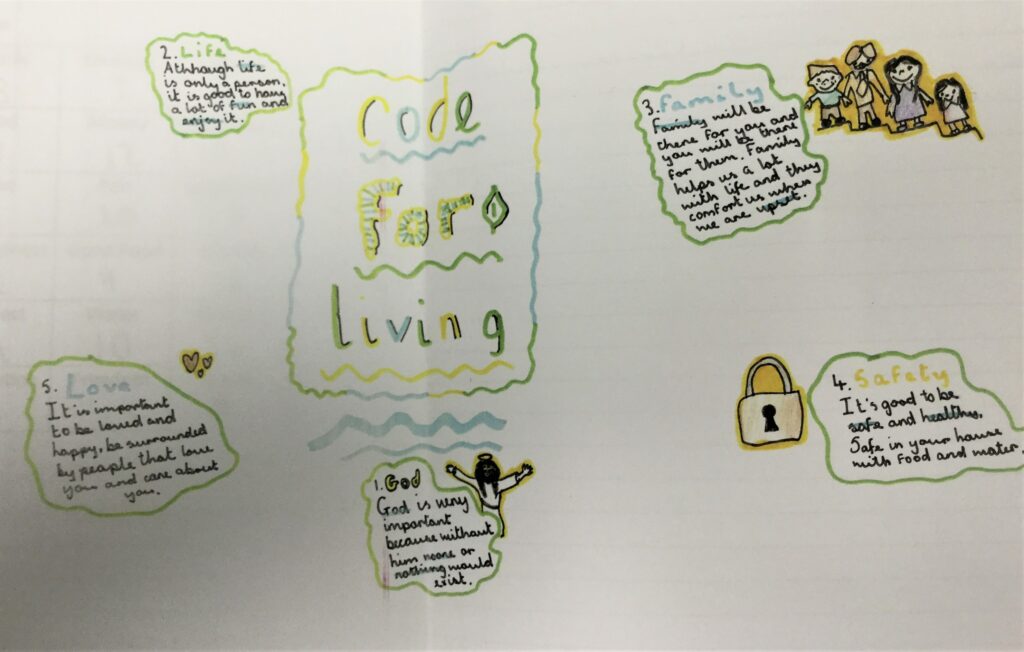 Code
For
living
1. God
God is very
important
because without
him noone or
nothing would
exist.
2. Life
Athhough life
is only a person,
it is good to have
a lot of fun and
enjoy it.
3. Family
Family will be
there for you and
you will be there
for them. Family
helps us a lot
with life and they
comfort us when
we are upset.
4. Safety
It's good to be
safe and healthy.
Safe in your house
with food and water.
5. Love
It is important
to be loved and
happy, be surrounded
by people that love
you and care about
you.